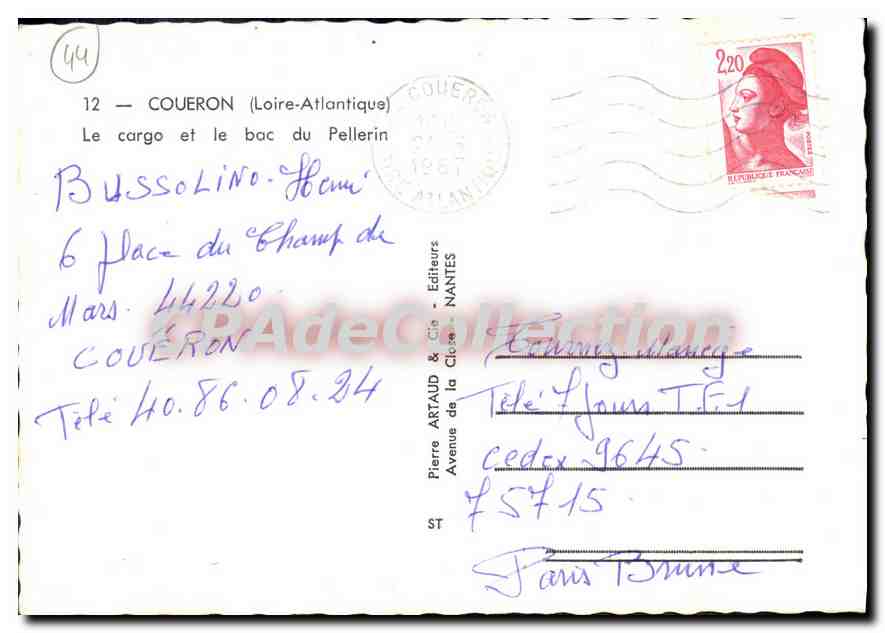 44
12 — COUERON (Loire-Atlantique)
Le cargo et le bac du Pellerin
BUSSOLINO - Henri
6 place du Champ de
Mars. 44220
COUËRON
Télé 40.86.08.24
COUERON
1987
LOIRE ATLANTIQUE
2,20
POSTES
REPUBLIQUE FRANÇAISE
CPAdeCollection
Pierre ARTAUD & Cie - Editeurs
Avenue de la Close - NANTES
ST
Tournez Manège
Télé 7 Jours T.F.1
cedex 9645.
75715.
Paris Brune